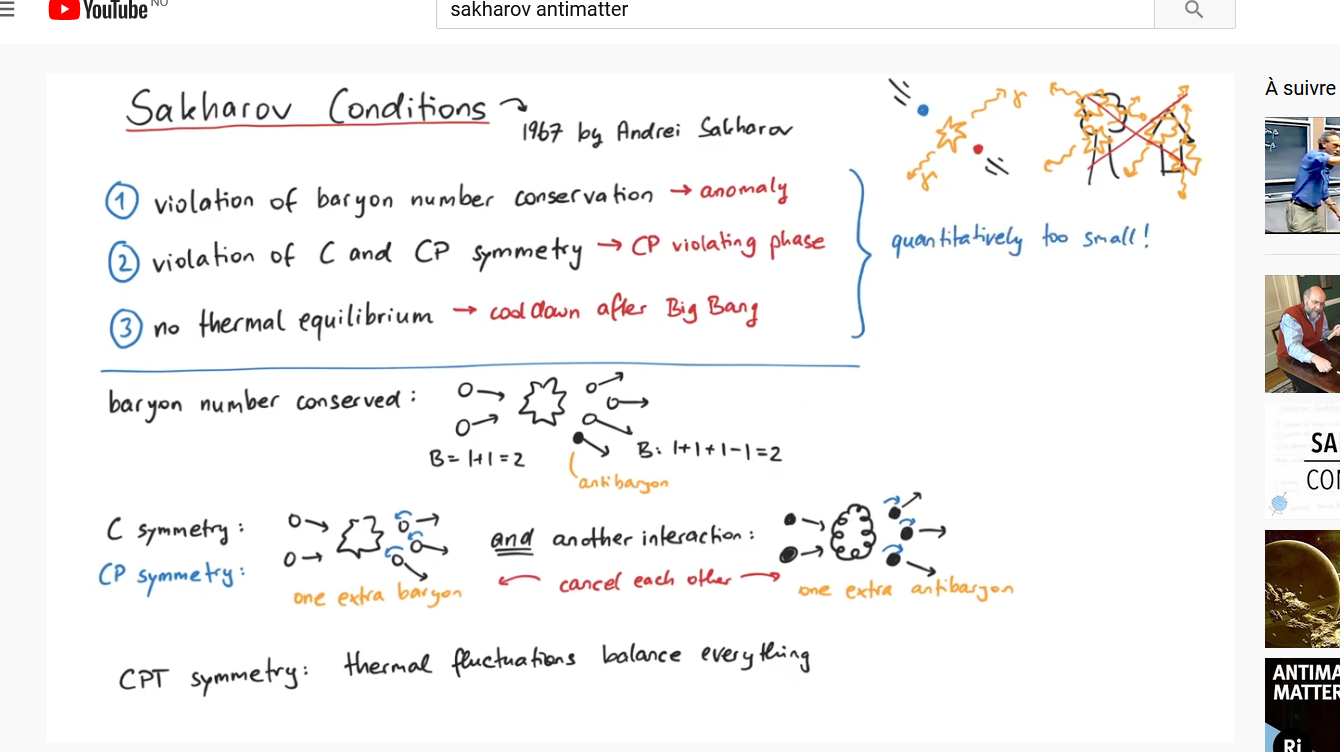 YouTube NO
sakharov antimatter
À suivre
Sakharov Conditions
1967 by Andrei Sakharov
γ
γ
① violation of baryon number conservation → anomaly
② violation of C and CP symmetry → CP violating phase
③ no thermal equilibrium → cool down after Big Bang
quantitatively too small!
baryon number conserved:
B= 1+1=2
B: 1+1+1-1=2
antibaryon
C symmetry:
and another interaction:
CP symmetry:
cancel each other
one extra baryon
one extra antibaryon
CPT symmetry: thermal fluctuations balance everything
SA
CON
ANTIMA
MATTER
Ri